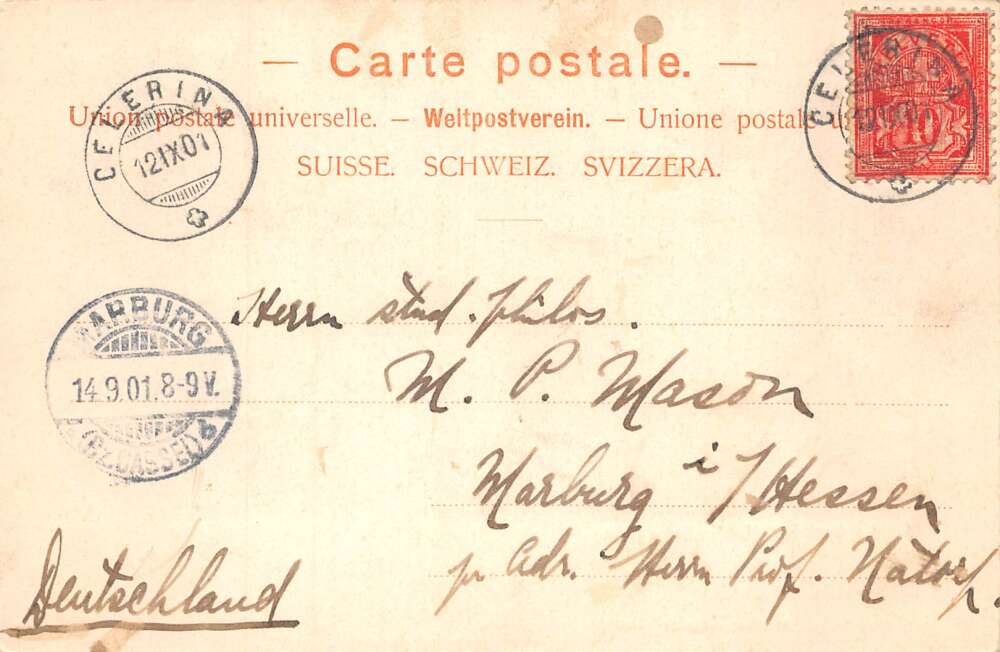 — Carte postale. —
Union postale universelle. — Weltpostverein. — Unione postale u
SUISSE. SCHWEIZ. SVIZZERA.
CELERINA
12 IX 01
CELERINA
12 IX 01
10
MARBURG
14.9.01.8-9 V.
(BZ. CASSEL)
Herrn stud. philos.
M. P. Mason
Marburg i/Hessen
pr Adr. Herrn Prof. Natorp.
Deutschland